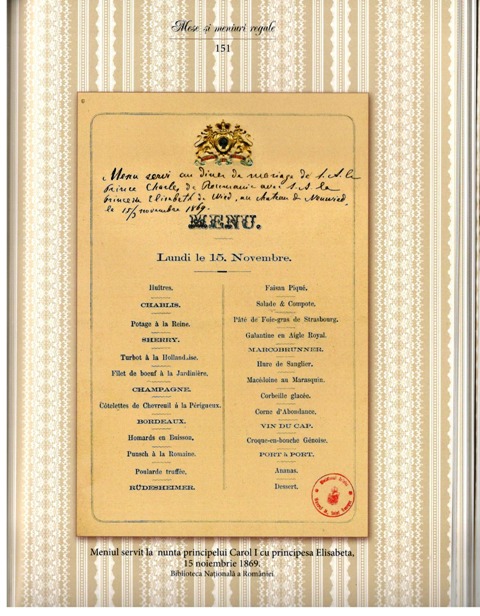 Mese și meniuri regale
151
Menu servi au diner de mariage de S. A. le
prince Charles de Roumanie avec S. A. la
princesse Elisabeth de Wied, au chateau de Neuwied,
le 15/3 novembre 1869.
MENU.
Lundi le 15. Novembre.
Huîtres.
CHABLIS.
Potage à la Reine.
SHERRY.
Turbot à la Hollandaise.
Filet de boeuf à la Jardinière.
CHAMPAGNE.
Côtelettes de Chevreuil à la Périgueux.
BORDEAUX.
Homards en Buisson.
Punsch à la Romaine.
Poularde truffée.
RÜDESHEIMER.
Faisan Piqué.
Salade & Compote.
Pâté de Foie-gras de Strasbourg.
Galantine en Aigle Royal.
MARCOBRUNNER.
Hure de Sanglier.
Macédoine au Marasquin.
Corbeille glacée.
Corne d'Abondance.
VIN DU CAP.
Croque-en-bouche Génoise.
PORT à PORT.
Ananas.
Dessert.
Meniul servit la nunta principelui Carol I cu principesa Elisabeta,
15 noiembrie 1869.
Biblioteca Națională a României.